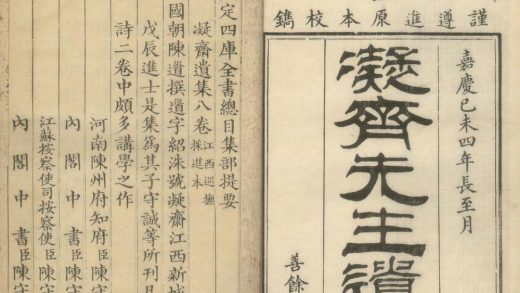 謹遵進原本校鐫
嘉慶己未四年長至月
凝齋先生遺
善餘
定四庫全書總目集部提要
凝齋遺集八卷江西巡撫採進本
國朝陳道撰道字紹洙號凝齋江西新城
戊辰進士是集為其子守誠等所刊凡
詩二卷中頗多講學之作
河南陳州府知府臣陳守
內閣中書臣陳守
江蘇按察使司按察使臣陳守
內閣中書臣陳守